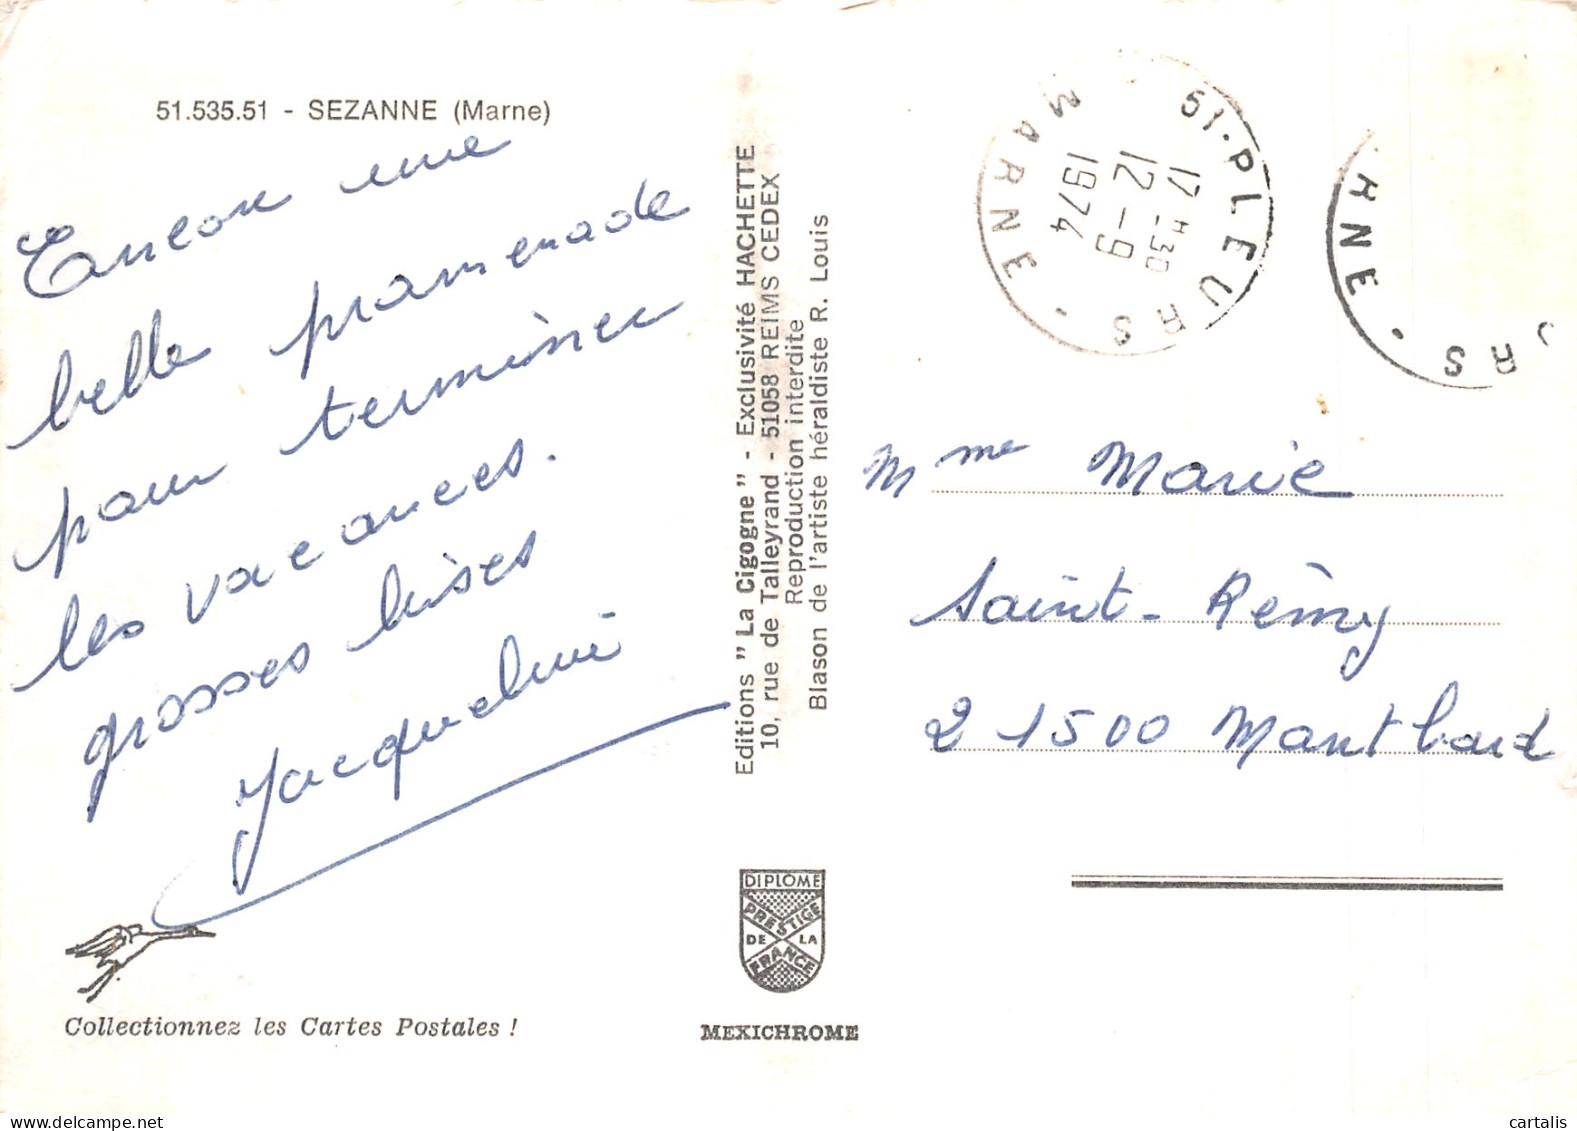 51.535.51 - SEZANNE (Marne)
Encore une
belle promenade
pour terminer
les vacances.
grosses bises
Jacqueline
Collectionnez les Cartes Postales !
Editions " La Cigogne " - Exclusivité HACHETTE
10, rue de Talleyrand - 51058 REIMS CEDEX
Reproduction interdite
Blason de l'artiste héraldiste R. Louis
DIPLOME
PRESTIGE
DE LA
FRANCE
MEXICHROME
51 · PLEURS · MARNE
17 H 30
12 - 9
1974
RNE · RS
Mme Marie
Saint-Rémy
21500 Montbard
cartalis